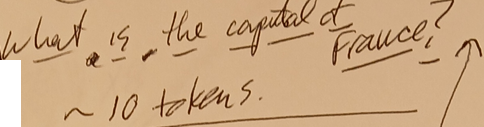 What is the capital of France?
~ 10 tokens.